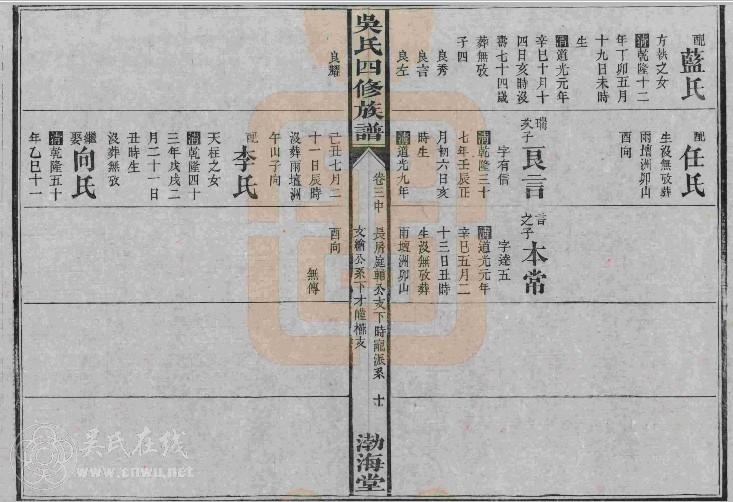 配藍氏
方執之女
清乾隆十二
年丁卯五月
十九日未時
生
清道光元年
辛巳十月十
四日亥時沒
壽七十四歲
葬無攷
子四
良秀
良言
良左
良耀
配任氏
生沒無攷葬
雨壇洲卯山
酉向
瑞次子良言
字有信
清乾隆三十
七年壬辰正
月初六日亥
時生
清道光九年
己丑七月二
十一日辰時
沒葬雨壇洲
午山子向
配李氏
天柱之女
清乾隆四十
三年戊戌二
月二十二日
丑時生
沒葬無攷
繼娶向氏
清乾隆五十
年乙巳十一
言之子本常
字達五
清道光元年
辛巳五月二
十三日丑時
生沒無攷葬
雨壇洲卯山
酉向
無傳
吳氏四修族譜
卷三中
長房庭輔公支下時寵派系
文繪公系下才
支
十
渤海堂
吴氏在线
www.cnwu.net